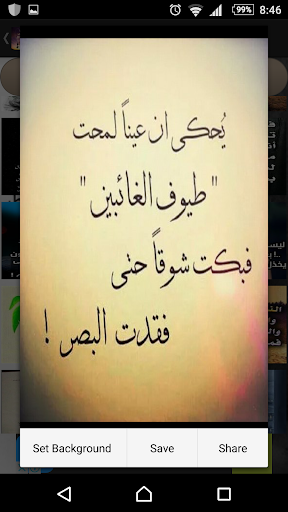 99% 8:46
يُحكى ان عيناً لمحت
" طيوف الغائبين "
فبكت شوقاً حتى
فقدت البصر !
Set Background Save Share